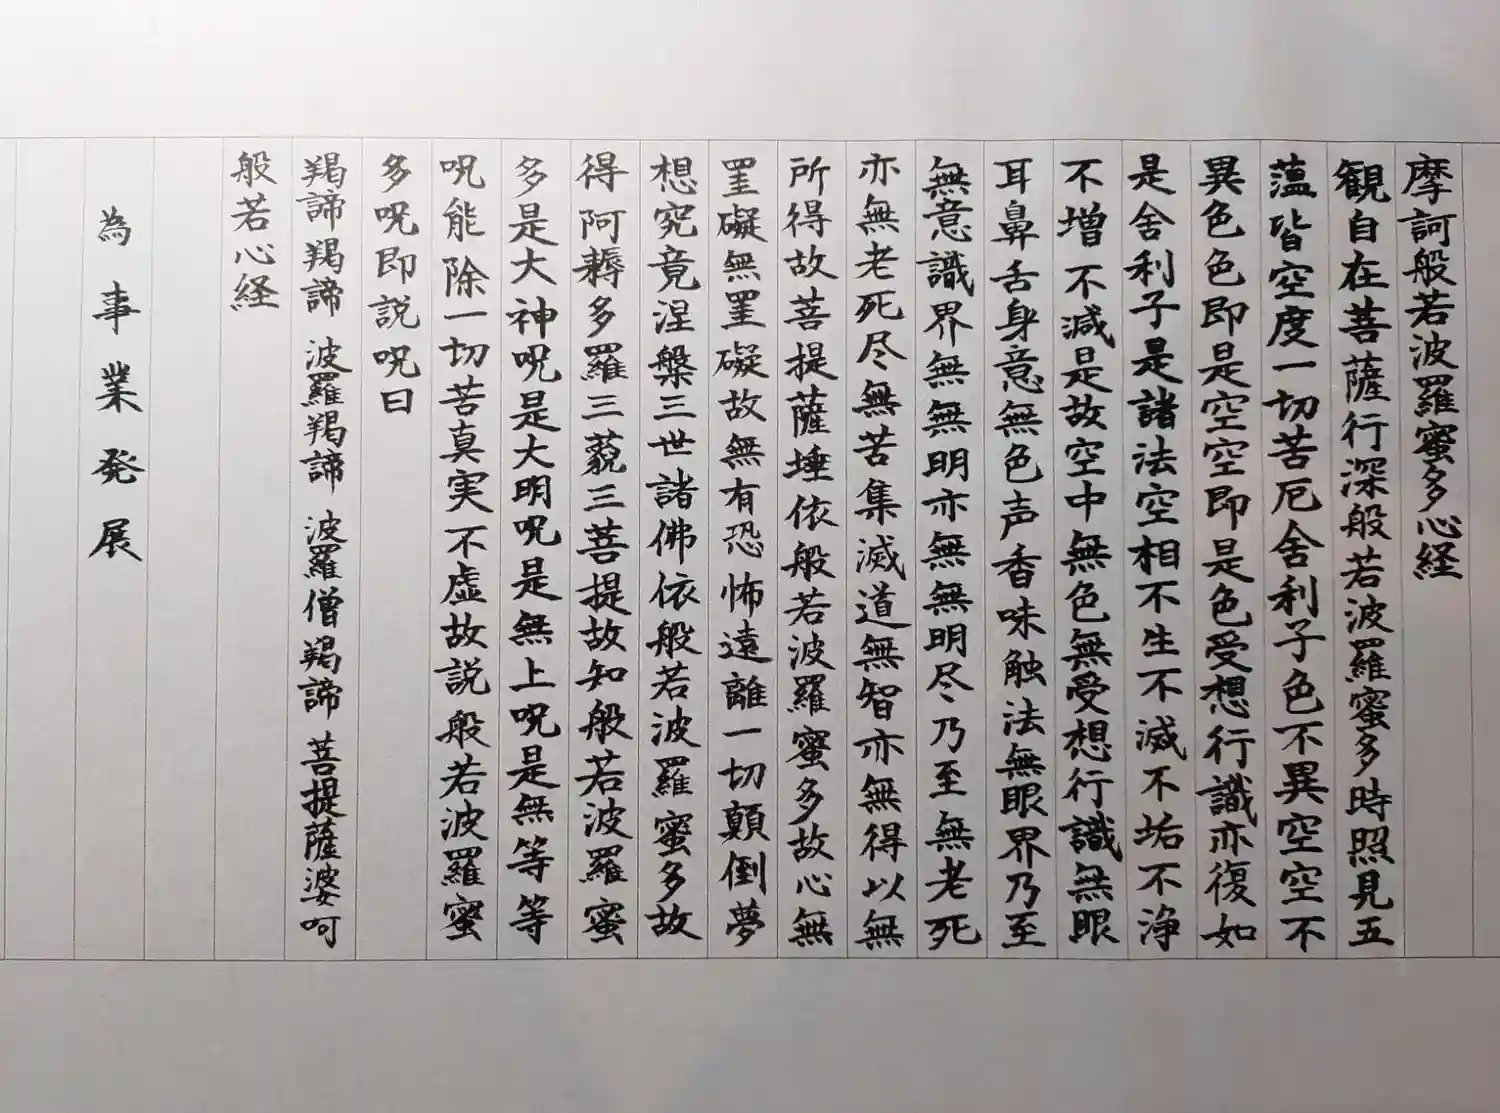 摩訶般若波羅蜜多心経
観自在菩薩行深般若波羅蜜多時照見五
薀皆空度一切苦厄舎利子色不異空空不
異色色即是空空即是色受想行識亦復如
是舎利子是諸法空相不生不滅不垢不浄
不増不減是故空中無色無受想行識無眼
耳鼻舌身意無色声香味触法無眼界乃至
無意識界無無明亦無無明尽乃至無老死
亦無老死尽無苦集滅道無智亦無得以無
所得故菩提薩埵依般若波羅蜜多故心無
罣礙無罣礙故無有恐怖遠離一切顛倒夢
想究竟涅槃三世諸佛依般若波羅蜜多故
得阿耨多羅三藐三菩提故知般若波羅蜜
多是大神呪是大明呪是無上呪是無等等
呪能除一切苦真実不虚故説般若波羅蜜
多呪即説呪曰
羯諦羯諦 波羅羯諦 波羅僧羯諦 菩提薩婆呵
般若心経
為事業発展